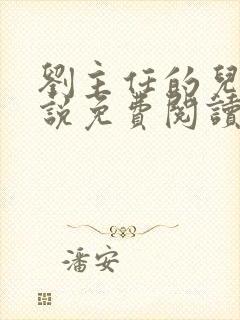 劉主任的兒
說免費閱讀
潘安